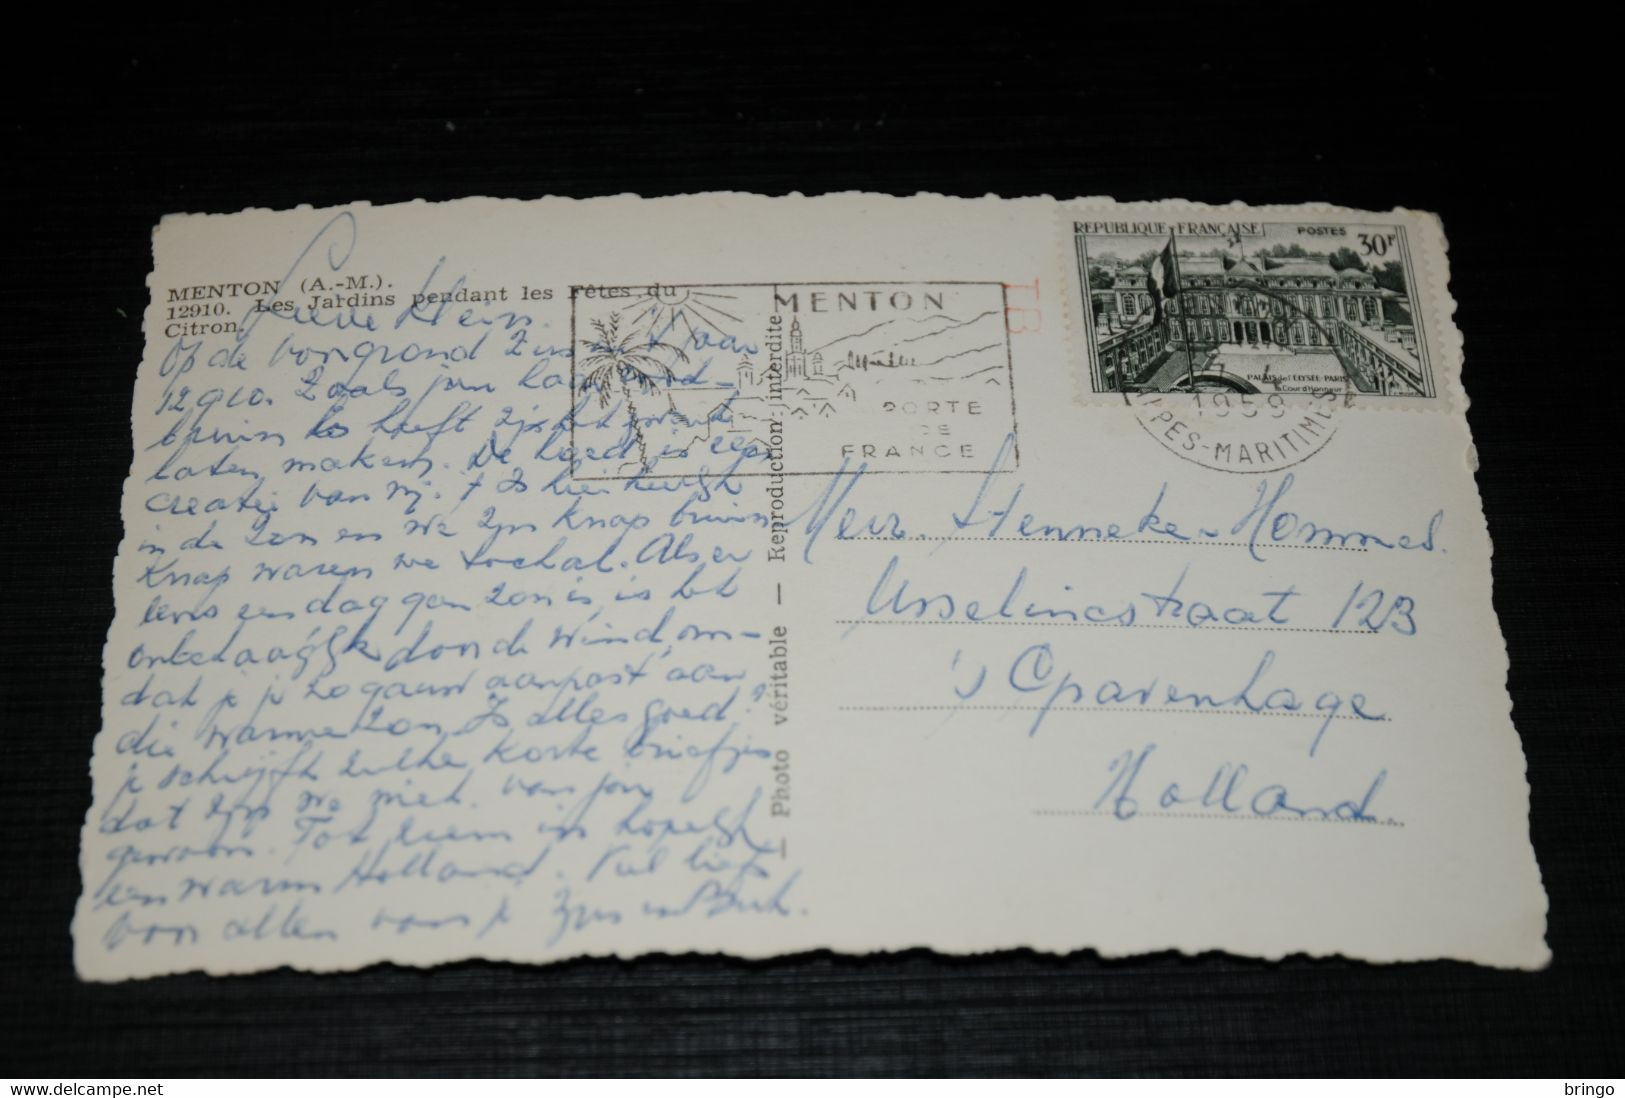 MENTON (A.-M.).
12910. Les Jardins pendant les Fêtes du
Citron.
Lieve Klein.
Op de voorgrond
12910. Zoals
bruin heeft
laten maken. De hoed is een
creatie van mij. Is hier heerlijk
in de zon en we zijn knap bruin
Knap waren we Als er
eens een dag geen zon is is het
onbehaaglijk door de wind, om-
dat je je zo gauw aanpast aan
die warme zon. Is alles goed?
je schrijft zulke korte briefjes
dat zijn we niet van jou
gewoon. Tot ziens in hopelijk
een warm Holland. Veel liefs
van allen voor je
— Photo véritable — Reproduction interdite
MENTON
PORTE
DE
FRANCE
REPUBLIQUE FRANÇAISE
POSTES
30F
PALAIS de l'ELYSÉE-PARIS
Cour d'Honneur
1959
ALPES-MARITIMES
Mevr. Stenneke-Hommel.
IJsselinckstraat 123
's Gravenhage
Holland.
bringo